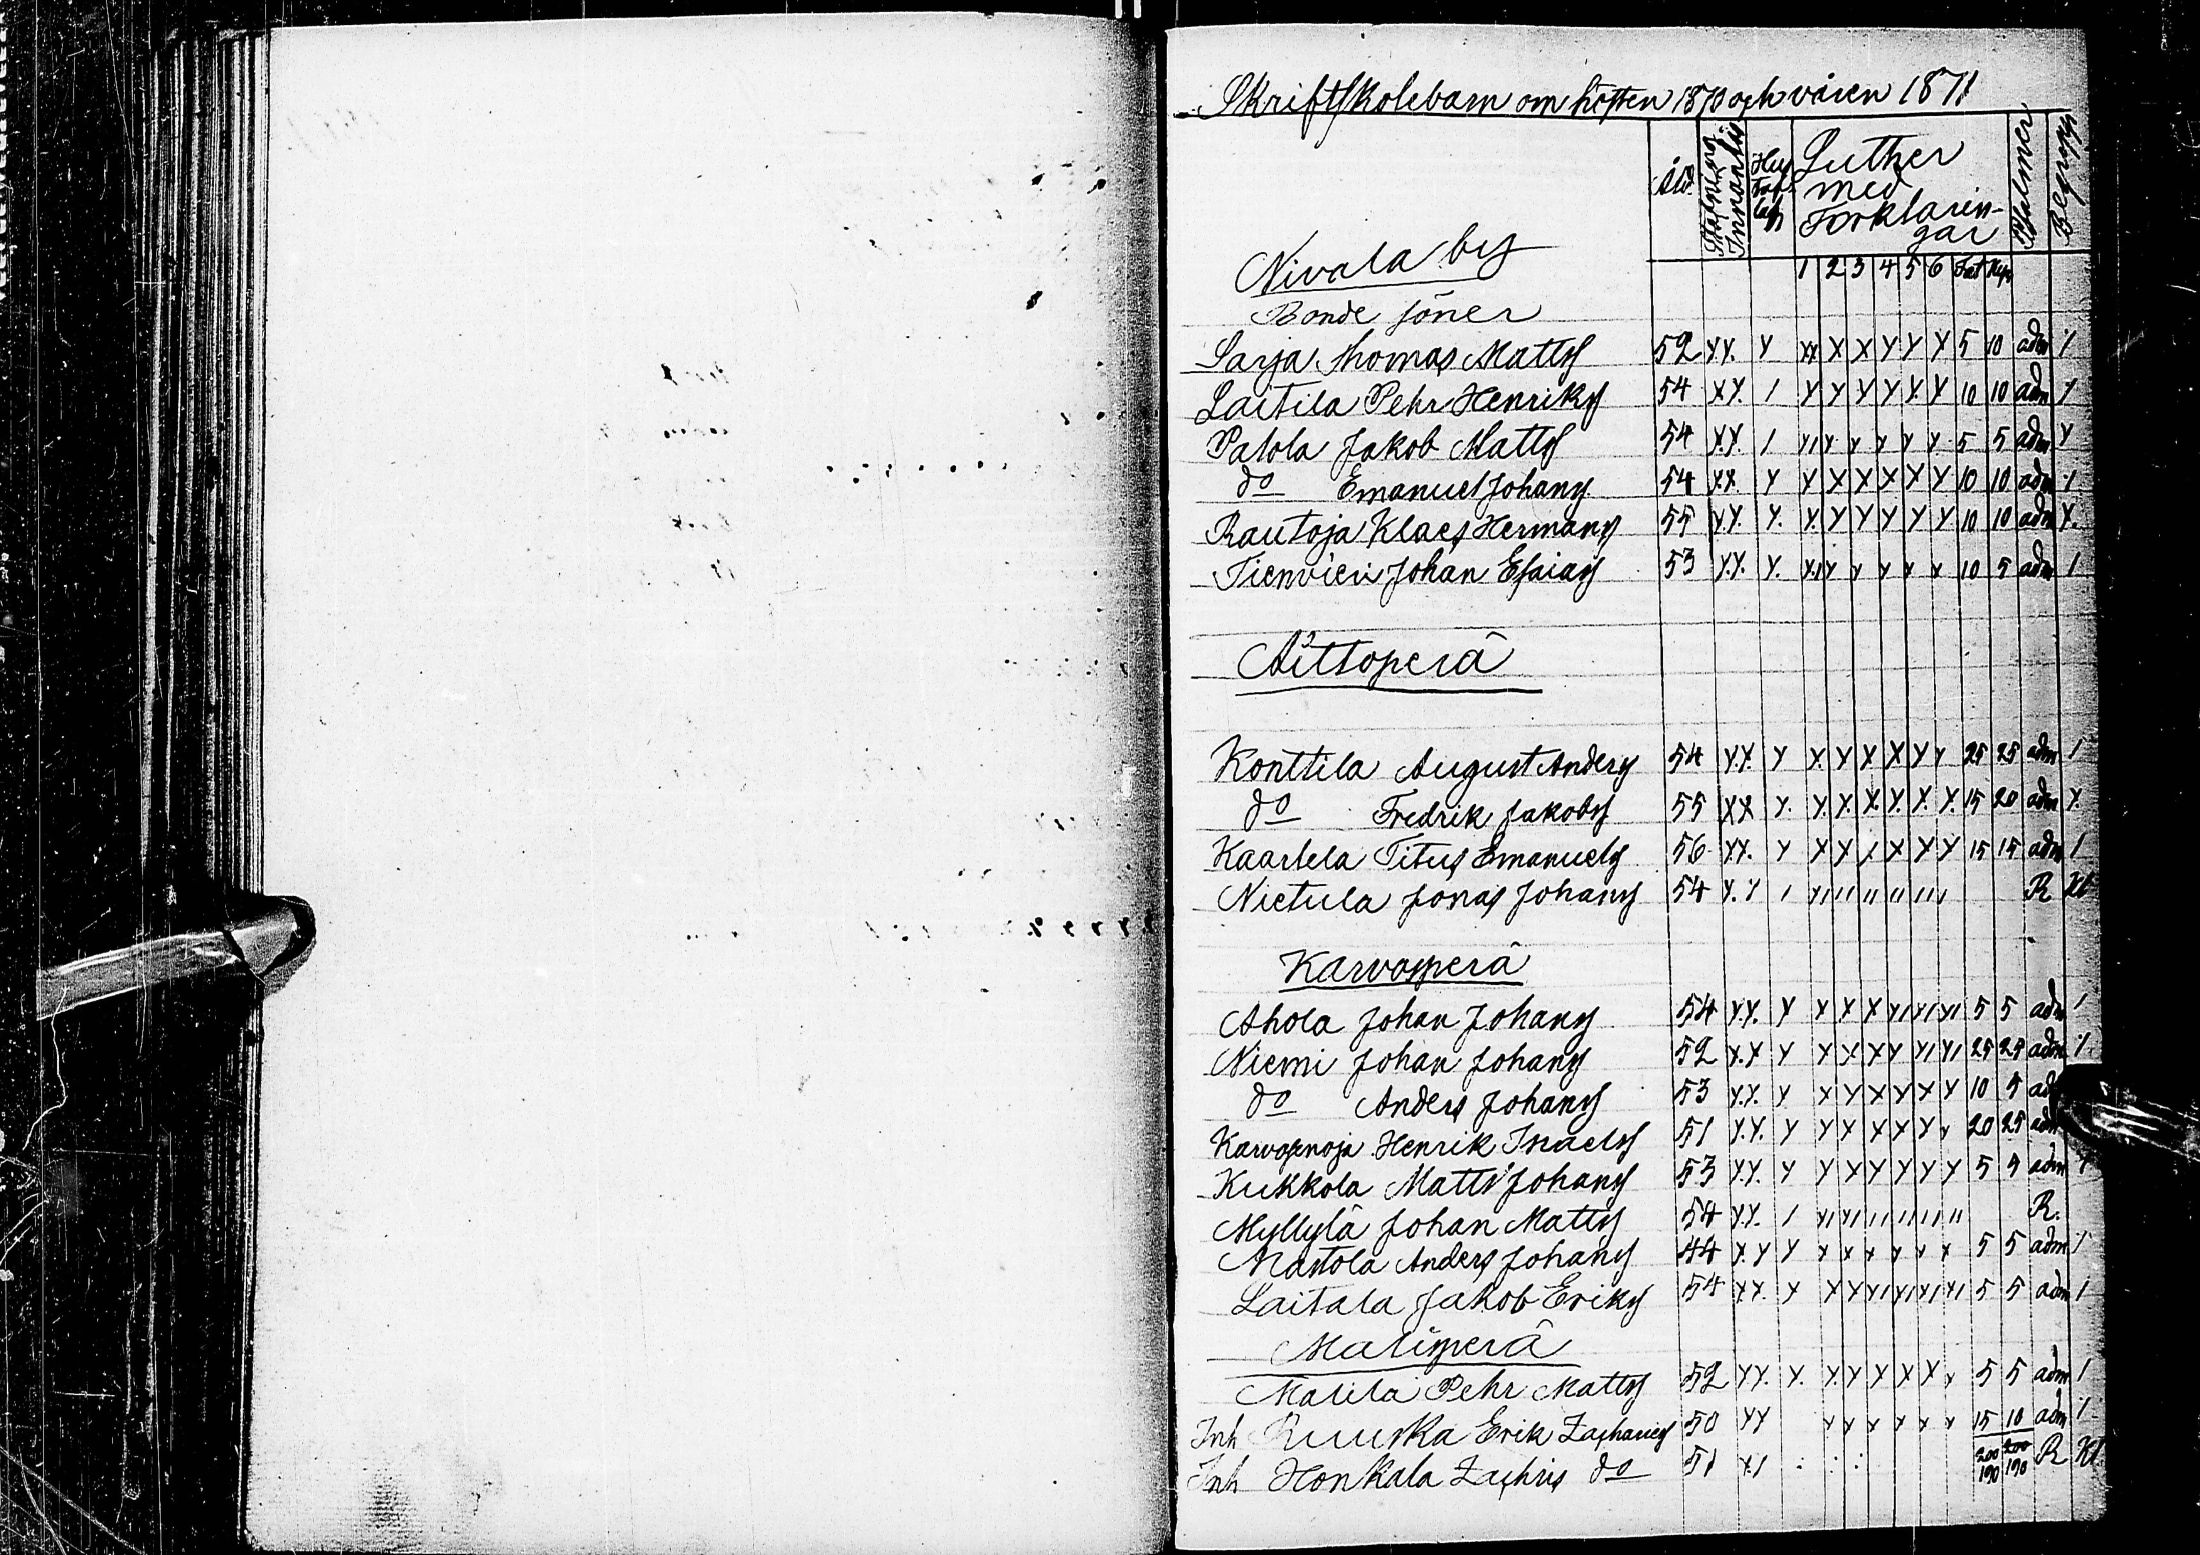 Skriftskolebarn om hösten 1870 och våren 1871
åld. Innanläs Hus taf lan Luther med Förklarin-gar Psalmer Begrepp
1 2 3 4 5 6
Nivala by
Bonde söner
Sarja Thomas Matts 52 XX. X XX X X X X X 5 10 adm /
Laitila Pehr Henriks 54 XX. / X X X X X X 10 10 adm /
Patola Jakob Matts 54 XX. / X/ X X X X X 5 5 adm X
do Emanuel Johans 54 XX. X X X X X X X 10 10 adm /
Rautoja Klaes Hermans 55 XX. X. X. X X X X X 10 10 adm X.
Tienvieri Johan Esaias 53 X.X. X. X/ X X X X X 10 5 adm /
Aittoperä
Konttila August Anders 54 XX. X X. X X X X X 25 25 adm /
do Fredrik Jakobs 55 XX X. X. X. X. X. X. X. 15 20 adm X.
Kaarlela Titus Emanuels 56 XX. X X X X X X X 15 15 adm /
Nietula Jonas Johans 54 X. / / X/ // // // // / R Kl
Karvosperä
Ahola Johan Johans 54 X.X. X X X X X/ X/ X/ 5 5 adm /
Niemi Johan Johans 52 X.X X X X X X X/ X/ 25 25 adm /.
do Anders Johans 53 X.X. X X X X X X X 10 5 ad
Karvosenoja Henrik Israels 51 X.X. X X X X X X X 20 25 adm
Kukkola Matts Johans 53 X.X. X X X X X X X 5 5 adm /
Myllylä Johan Matts 54 X.X. / X/ X/ // // // // R.
Mastola Anders Johans 44 X.X X X X X X X X 5 5 adm /
Laitala Jakob Eriks 54 XX. X X X X/ X/ X/ X/ 5 5 adm /
Maliperä
Malila Pehr Matts 52 XX. X. X. X X X X X 5 5 adm /
Inh Ruuska Erik Zacharies 50 XX X X X X X X 15 10 adm /
Inh Honkala Zachris do 51 X/ : : : 200 190 200 190 R Kl.